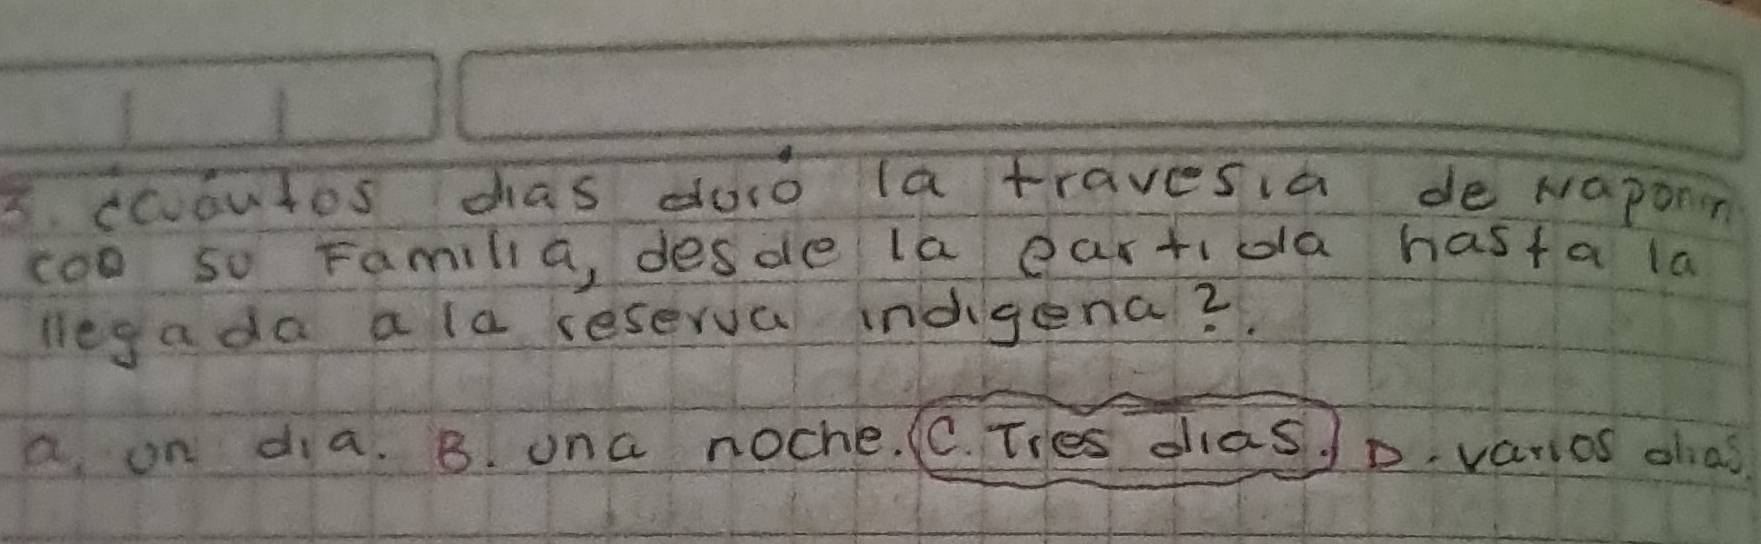 3. ¿Cuáutos dias duró la travesia de Naponin
con su Familia, desde la partida hasta la
llegada a la reserva indigena?.
a. un dia. B. una noche. C. Tres dias. D. varios dias.